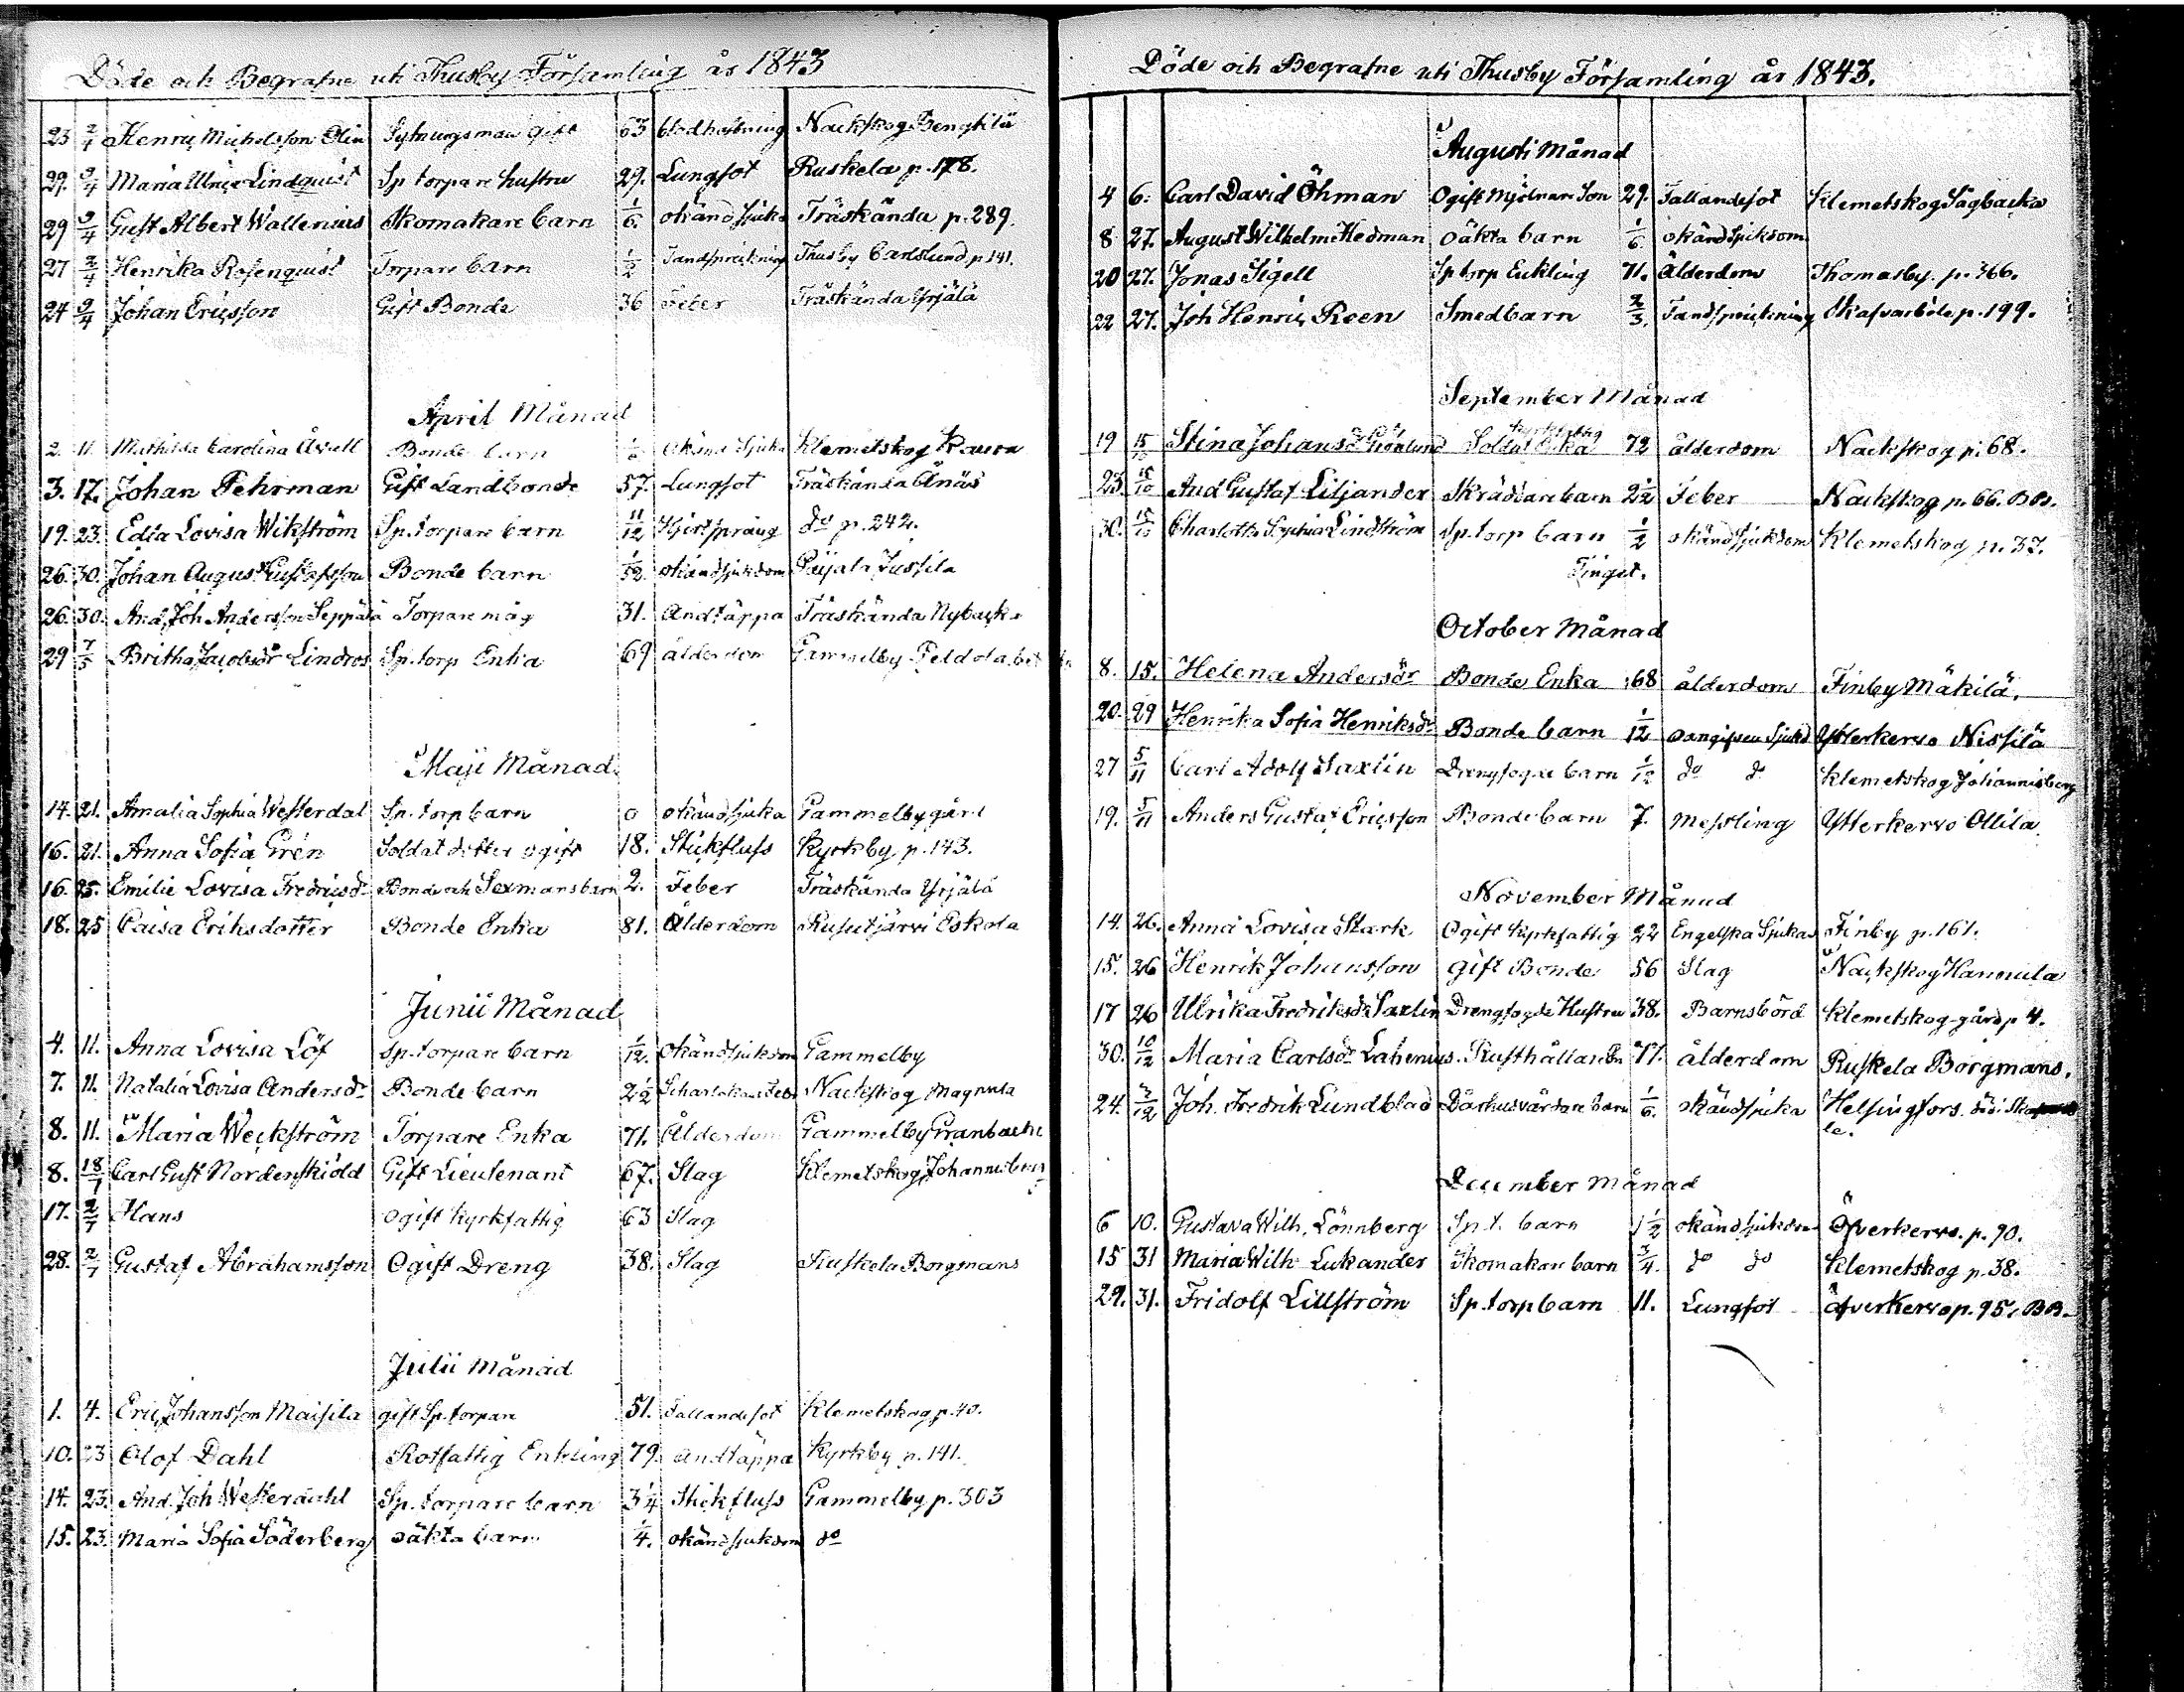 Döde och Begrafne uti Thusby Församling år 1843
23 2/4 Henric Michelsson Olin Sytningsman gift 63 blodhostning Nackskog Bengtilä
29. 9/4 Maria Ulrica Lindquist Sp torpare hustru 29. Lungsot Ruskela p. 178.
29 9/4 Gust Albert Wallenius Skomakare barn 1/6. okänd sjuka Träskända p. 289.
27 2/4 Henrika Rosenquist Torpare barn 1/2 Tandsprickning Thusby Carlslund p 141.
24 9/4 Johan Ericsson Gift Bonde 36 Feber Träskända Yrjälä
April Månad
2. 11. Mathilda Carolina Åvall Bonde barn okänd Sjuka Klemetskog
3. 17. Johan Fehrman Gift Landbonde 57. Lungsot Träskända Änäs
19. 23. Edla Lovisa Wikström Sp. torpare barn 11/12 Hjertsprång do p. 242.
26. 30. Johan August Gustafsson Bonde barn 1/52. okänd sjukdom Paijala Jussila
26. 30. And. Joh Andersson Seppälä Torpare måg 31. Andtäppa Träskända Nybacka
29 7/5 Britha Jacobsdr Lindros Sp. torp Enka 69 ålderdom Gammelby Peldola
Maji Månad
14. 21. Amalia Sophia Westerdal Sp. torp barn 0 okänd sjuka Gammelby gård
16. 21. Anna Sofia Grén Soldat dotter ogift 18. Stickfluss Kyrkby p. 143.
16. 25. Emilie Lovisa Fredricsdr Bonde och Sexmans barn 2. Feber Träskända Yrjälä
18. 25 Caisa Eriksdotter Bonde Enka 81. Ålderdom Rusutjärvi Eskola
Junii Månad
4. 11. Anna Lovisa Löf Sp. torpare barn 1/12. okänd sjukdom Gammelby
7. 11. Natalia Lovisa Andersdr Bonde barn 2 1/2 Scharlakans Feber Nackskog Magnula
8. 11. Maria Weckström Torpare Enka 71. Ålderdom Gammelby Granbacka
8. 18/7 Carl Gust Nordenskiöld Gift Lieutenant 67. Slag Klemetskog Johannisberg
17. 2/7 Hans Ogift kyrkfattig 63 Slag
28. 2/7 Gustaf Abrahamsson Ogift Dreng 38. Slag Ruskela Borgmans
Julii Månad
1. 4. Eric Johansson Maisila gift Sp. torpare 51. Fallandesot Klemetskog p. 40.
10. 23 Olof Dahl Rotfattig Enkling 79. andtäppa Kyrkby p. 141.
14. 23. And. Joh Westerdahl Sp. torpare barn 3 1/4 Stickfluss Gammelby p. 303
15. 23. Maria Sofia Söderberg oäkta barn 1/4. okänd sjukdom do
Döde och Begrafne uti Thusby Församling år 1843.
Augusti Månad
4 6. Carl David Öhman Ogift Mjölnare Son 29. Fallandesot Klemetskog Sågbacka
8 27. August Wilhelm Hedman oäkta barn 1/6 okänd Sjukdom
20 27. Jonas Sigell Sp torp Enkling 71. Ålderdom Thomasby. p. 366.
22 27. Joh Henric Reen Smed barn 2/3. Tandsprickning Skafvarböle p. 199.
September Månad
kyrkfattig
19 15/10 Stina Johansdr Grönlund Soldat Enka 72 ålderdom Nackskog p. 68.
23. 15/10 And Gustaf Liljander Skräddare barn 2 1/2 Feber Nackskog p. 66. BB.
30. 15/10 Charlotta Sophia Lindström Sp. torp barn 1/2 okänd sjukdom Klemetskog p. 37.
Tinget.
October Månad
8. 15. Helena Andersdr Bonde Enka 68 ålderdom Finby Mäkilä.
20. 29 Henrika Sofia Henriksdr Bonde barn 1/12 oangifven Sjukd Ytterkervo Nissilä
27 5/11 Carl Adolf Saxlin Drengfogde barn 1/12 do do Klemetskog Johannisberg
19. 5/11 Anders Gustaf Ericsson Bonde barn 7. Messling Ytterkervo Ollila
November Månad
14. 26. Anna Lovisa Stark Ogift Kyrkfattig 22 Engelska Sjukan Finby p. 161.
15. 26 Henrik Johansson gift Bonde 56 Slag Nackskog Hannula
17 26 Ulrika Fredriksdr Saxlin Drengfogde Hustru 38. Barnsbörd Klemetskog gård p 4.
30. 10/12 Maria Carlsdr Lahenius. Rusthållare En 77. ålderdom Ruskela Borgmans.
24. 3/12 Joh. Fredrik Lundblad Dårhusvårdare barn 1/6. okänd sjuka Helsingfors.
December Månad
6 10. Gustava Wilh. Lönnberg Sp. t. barn 1 1/2 okänd sjukdom Öfverkervo. p. 90.
15 31 Maria Wilh Lukander Skomakare barn 3/4. do do Klemetskog p. 38.
29. 31. Fridolf Lillström Sp. torp barn 11. Lungsot Öfverkervo p. 95. BB.